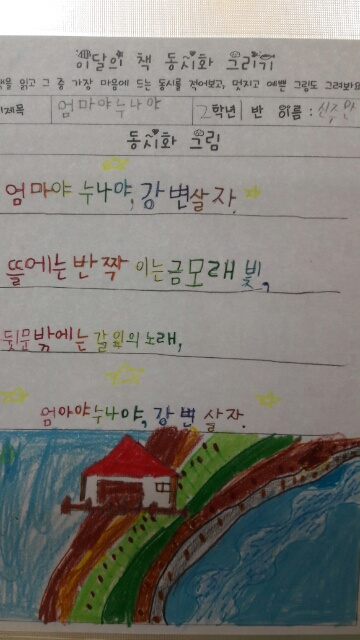 이달의 책 동시화 그리기
책을 읽고 그 중 가장 마음에 드는 동시를 적어보고, 멋지고 예쁜 그림도 그려봐요
제목 엄마야누나야 2학년 반 이름 :
동시화 그림
엄마야 누나야, 강변살자.
뜰에는 반짝 이는금모래 빛,
뒷문밖에는 갈잎의 노래,
엄아야누나야, 강변 살자.